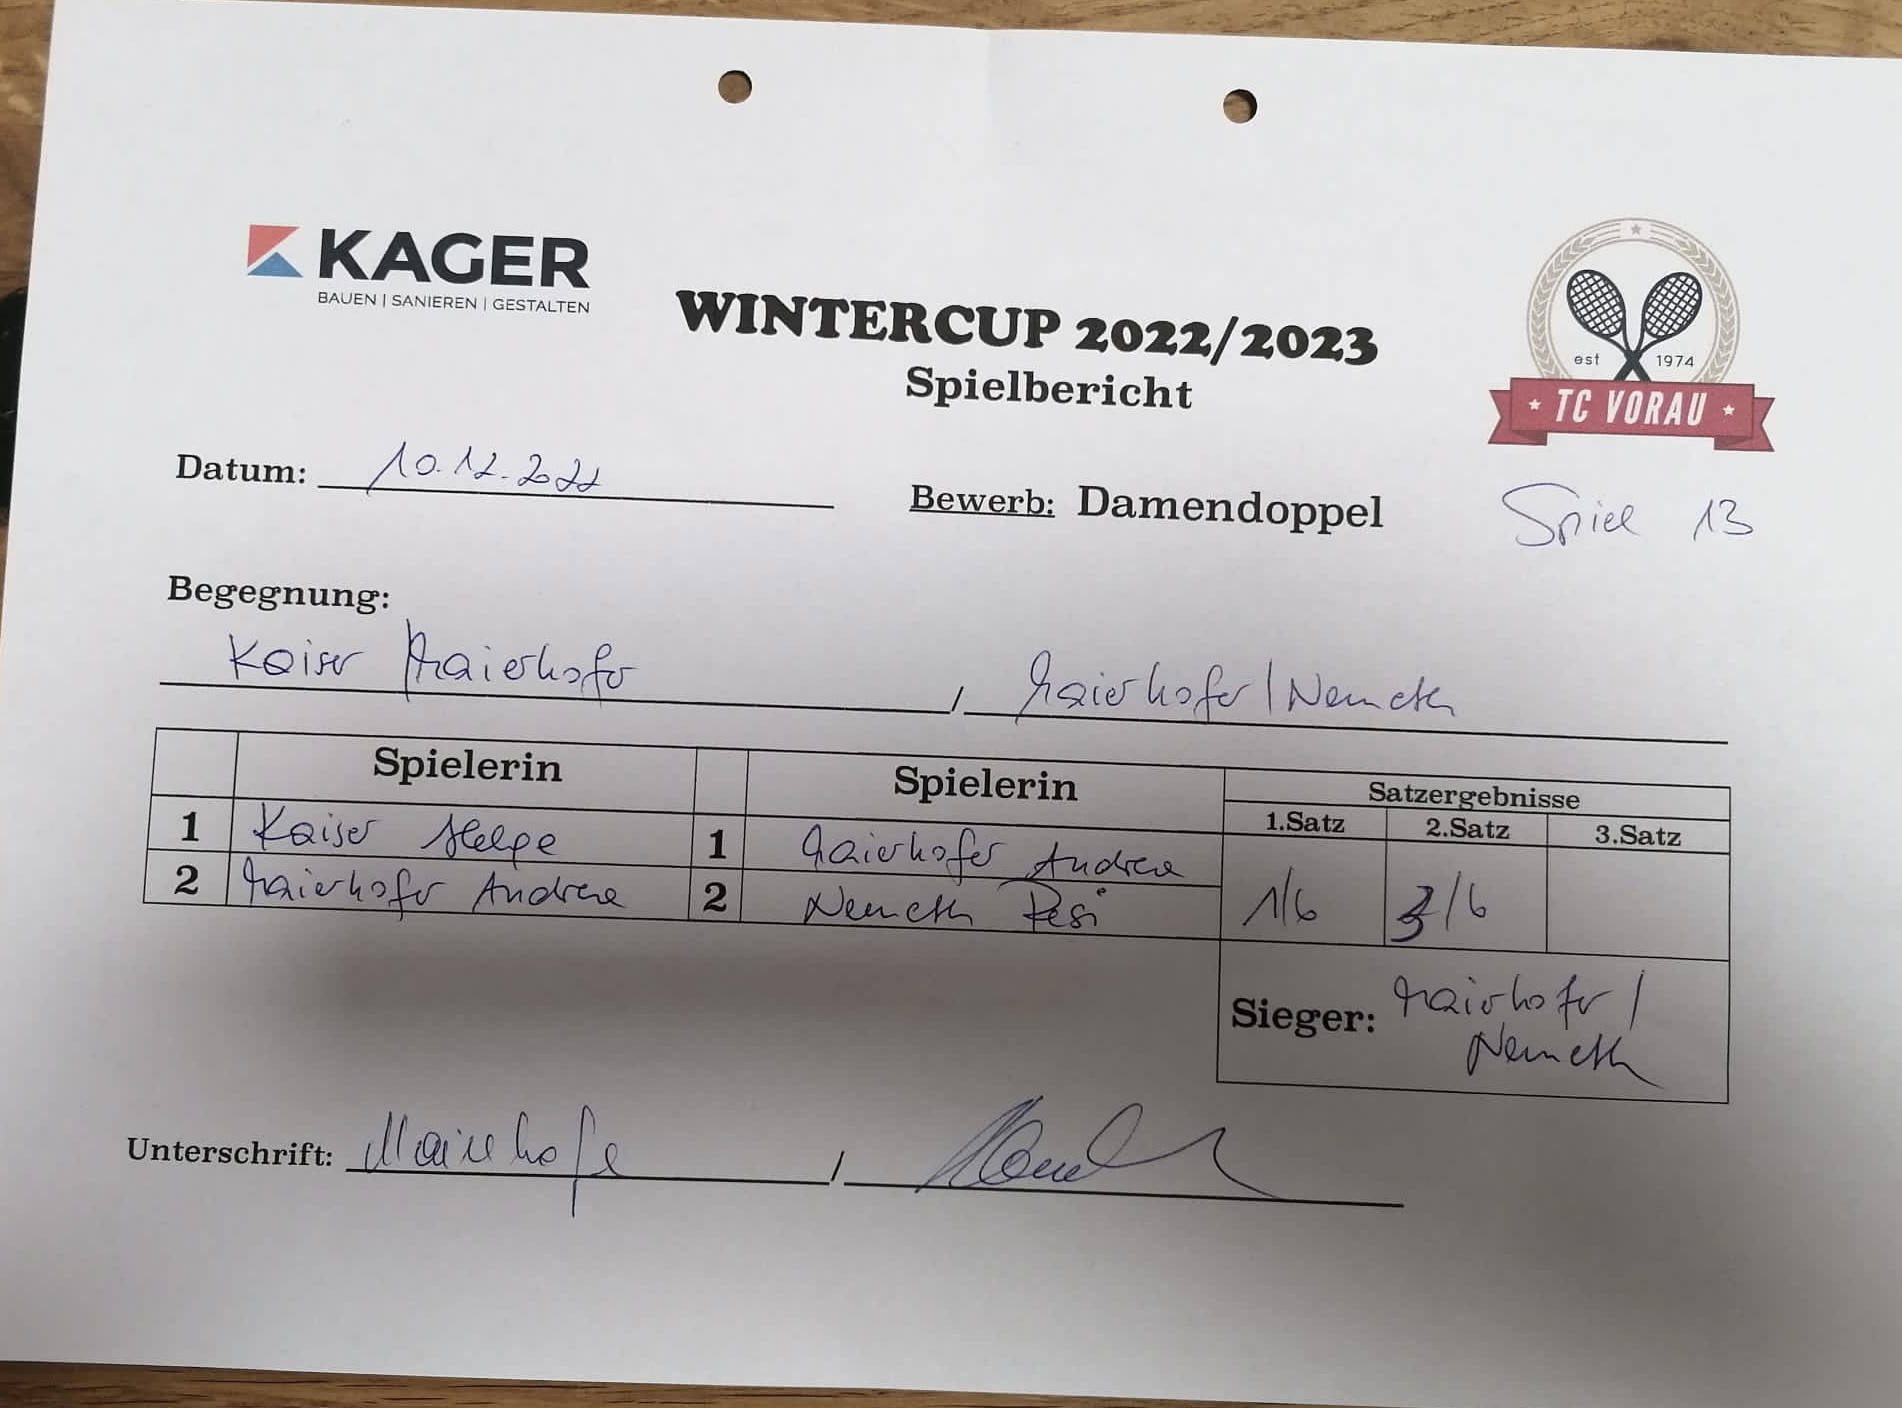 KAGER
BAUEN | SANIEREN | GESTALTEN
WINTERCUP 2022/2023
Spielbericht
est 1974
* TC VORAU *
Datum: 10.12.2022
Bewerb: Damendoppel
Spiel 13
Begegnung:
Kaiser Maierhofer / Maierhofer / Nemeth
Spielerin Spielerin Satzergebnisse
1.Satz 2.Satz 3.Satz
1 Kaiser Helga 1 Maierhofer Andrea
2 Maierhofer Andrea 2 Nemeth Resi
1/6 3/6
Sieger: Maierhofer /
Nemeth
Unterschrift: Maierhofe /